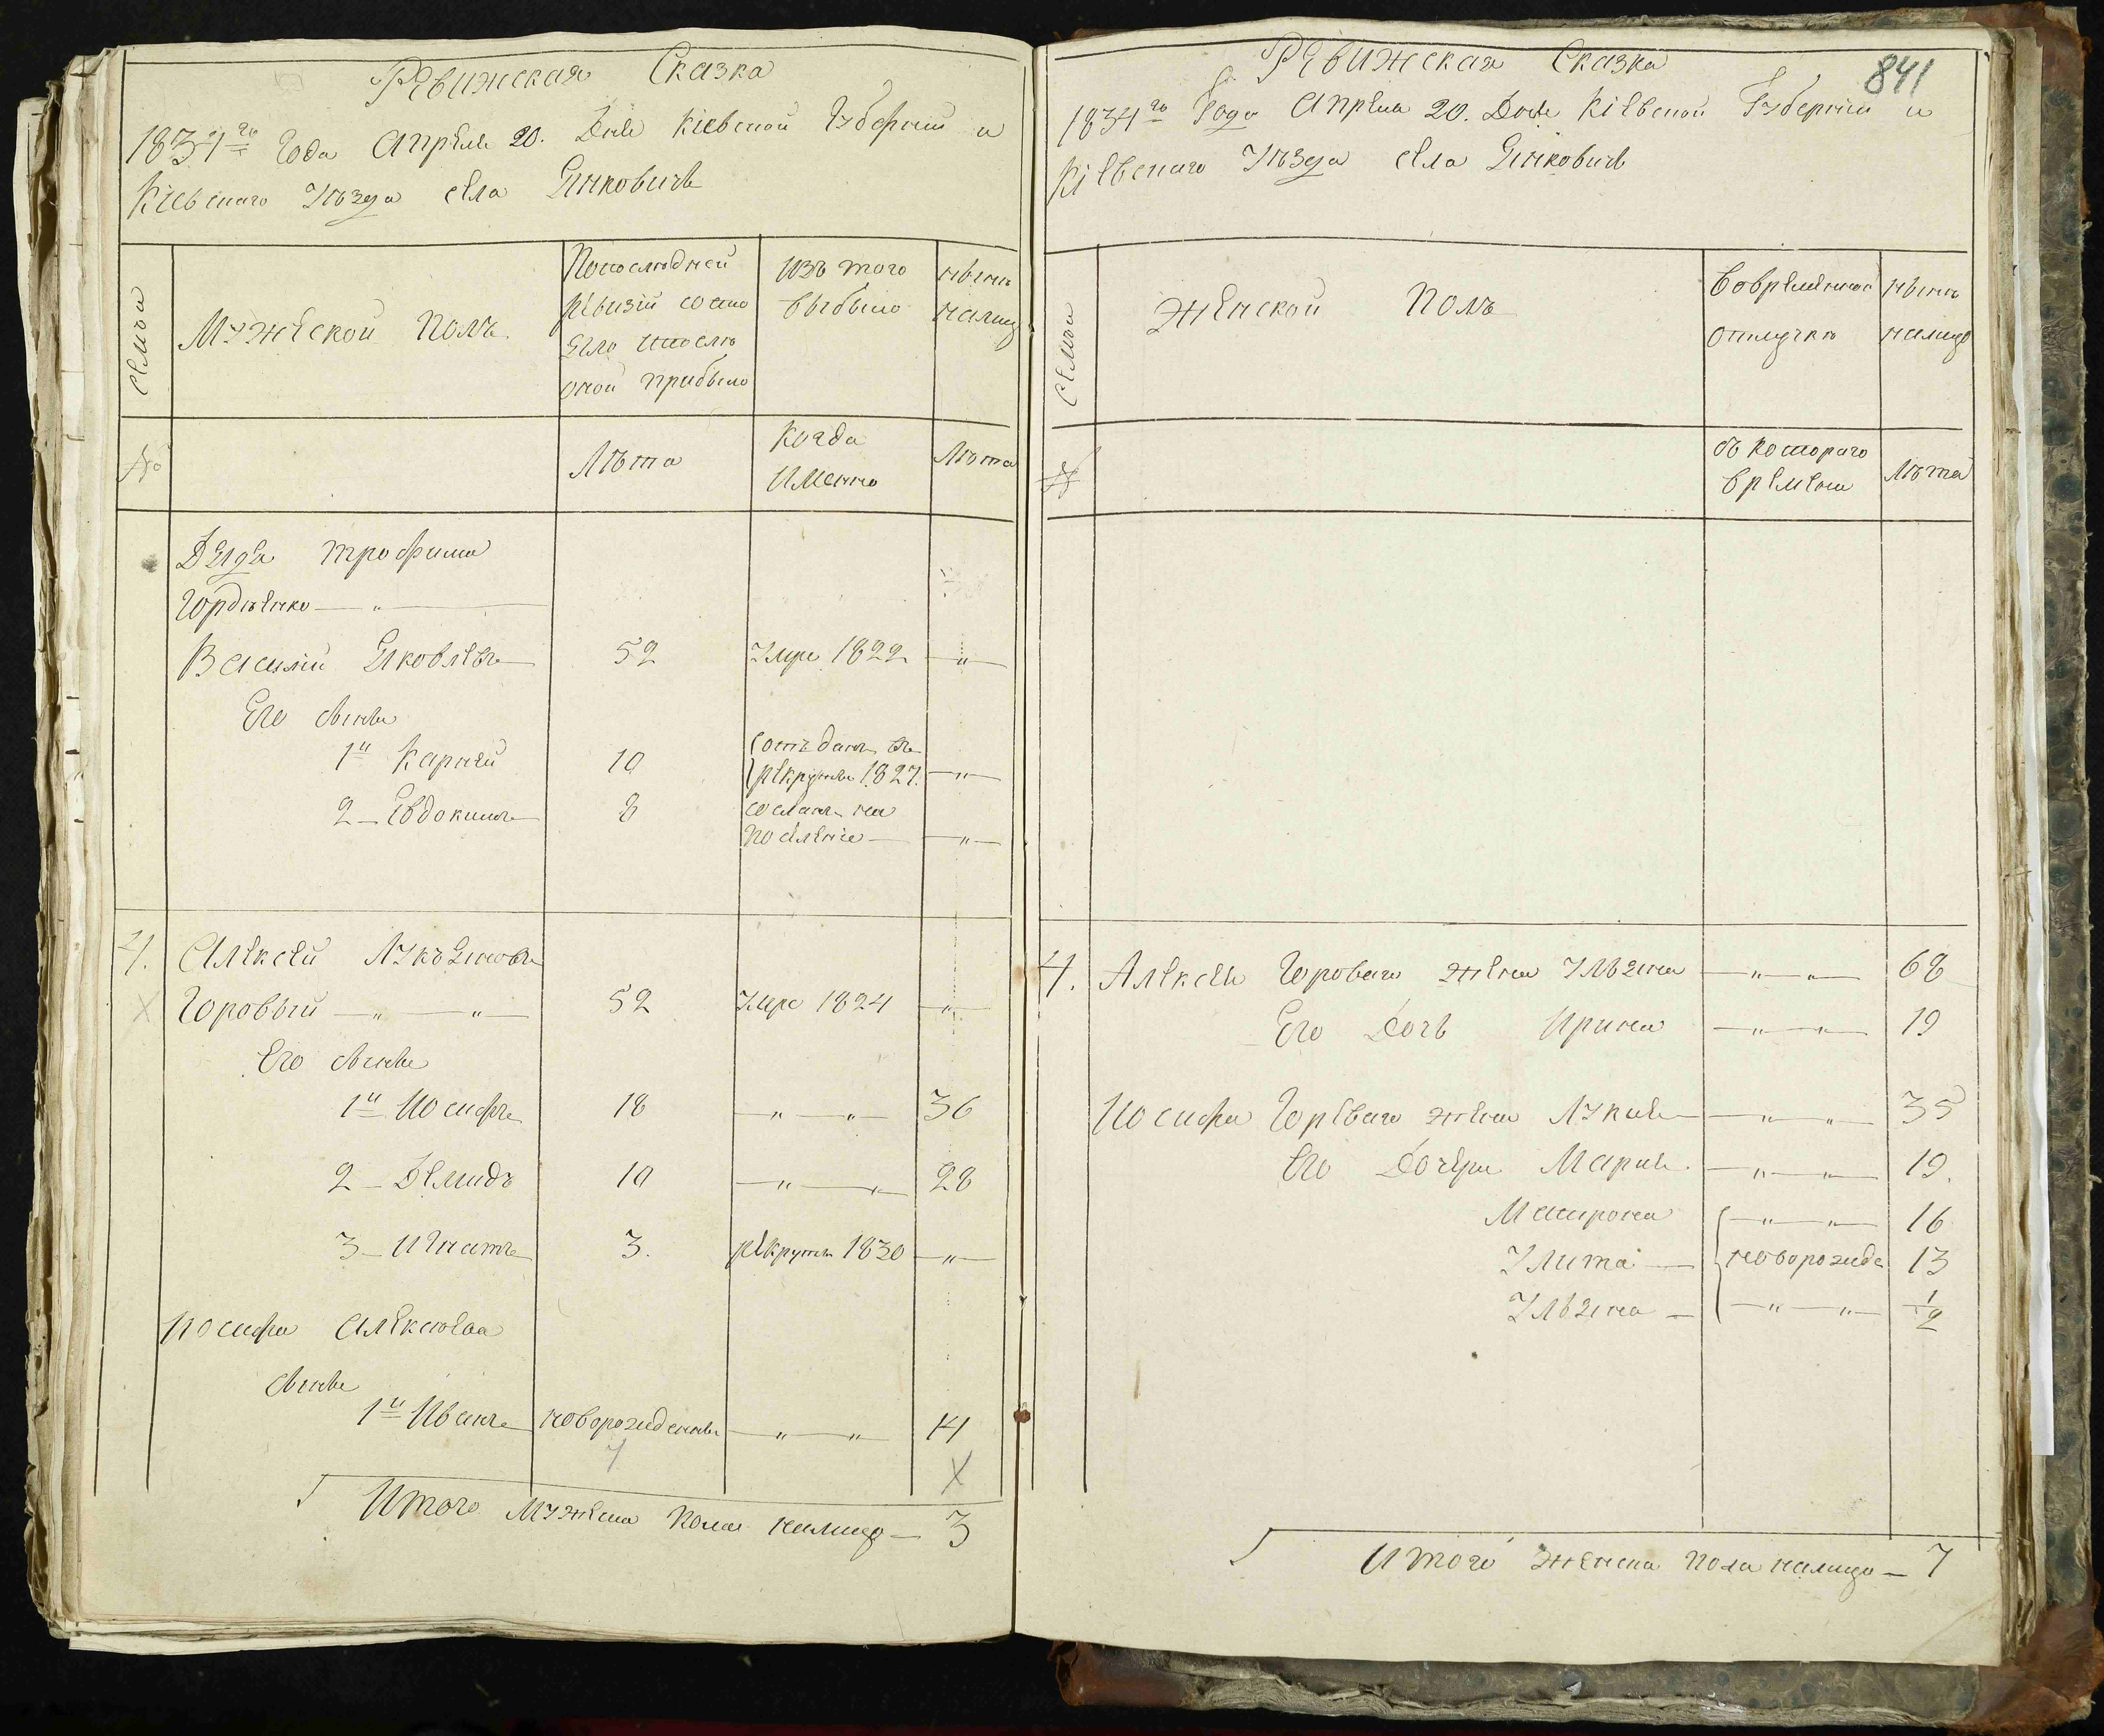 Ревижская Сказка
1834го Года Апреля 20. Дня Киевской Губернии и
Киевскаго Уѣзда села Янковичь
Семьи
Мужеской Полъ
Попоследней
ревизіи состо
яло ипослѣ
оной прибыло
Изъ того
выбыло
нынѣ
налицо
№
Лѣта
Когда
Имянно
Лѣта
Дядя Трофима
Гордѣенко — „ —
Василій Яковлевъ 52 Умре 1822 — „ —
Его сынья
1й Карней 10 отъ данъ въ
рекруты 1827. — „ —
2 — Евдокимъ 8 сосланъ на
поселеніе — — „ —
4. Алексей Лукьяновъ
Горовый — „ — „ — 52 Умре 1824 — „ —
Его сынья
1й Иосифъ 18 — „ — „ — 36
2 — Демидъ 10 — „ — „ 28
3 — Игнатъ 3. рекрутъ 1830 — „ —
Иосифа Алексѣева
сынья
1й Иванъ новорожденны — „ — „ — 14
7 X
Итого Мужеска Пола налицо — 3
841
Ревижская Сказка
1834го Года Апреля 20. Дня Кіевской Губерніи и
Кіевскаго Уѣзда села Янковичь
Семьи
Женской Полъ
Вовременной
отлучкѣ
нынѣ
налицо
№
съ Котораго
времени
Лѣта
4. Алексея Гороваго жена Ульяна — „ — „ — 68
Его Дочь Ирина — „ — „ — 19
Иосифа Гореваго жена Лукия — „ — „ — 35
Его Дочери Мария — „ — „ — 19.
Матрона — „ — „ — 16
Улита — новорожде 13
Ульяна — — „ — „ — 1/2
Итого женска пола налицо — 7